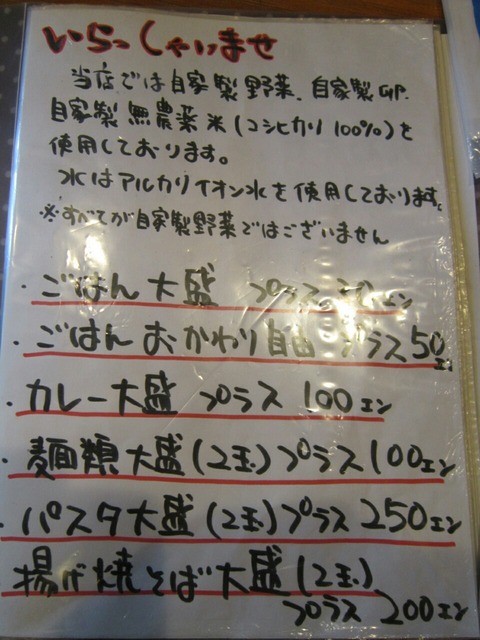 いらっしゃいませ
当店では自家製野菜、自家製
自家製無農薬米(コシヒカリ100%)を
使用しております。
水はアルカリイオン水を使用しております。
※すべてが自家製野菜ではございません
・ごはん大盛 プラス エン
・ごはんおかわり自由 プラス50エン
・カレー大盛 プラス 100エン
・麺類大盛(2玉)プラス100エン
・パスタ大盛(2玉)プラス250エン
揚げ焼そば大盛(2玉)
プラス 200エン